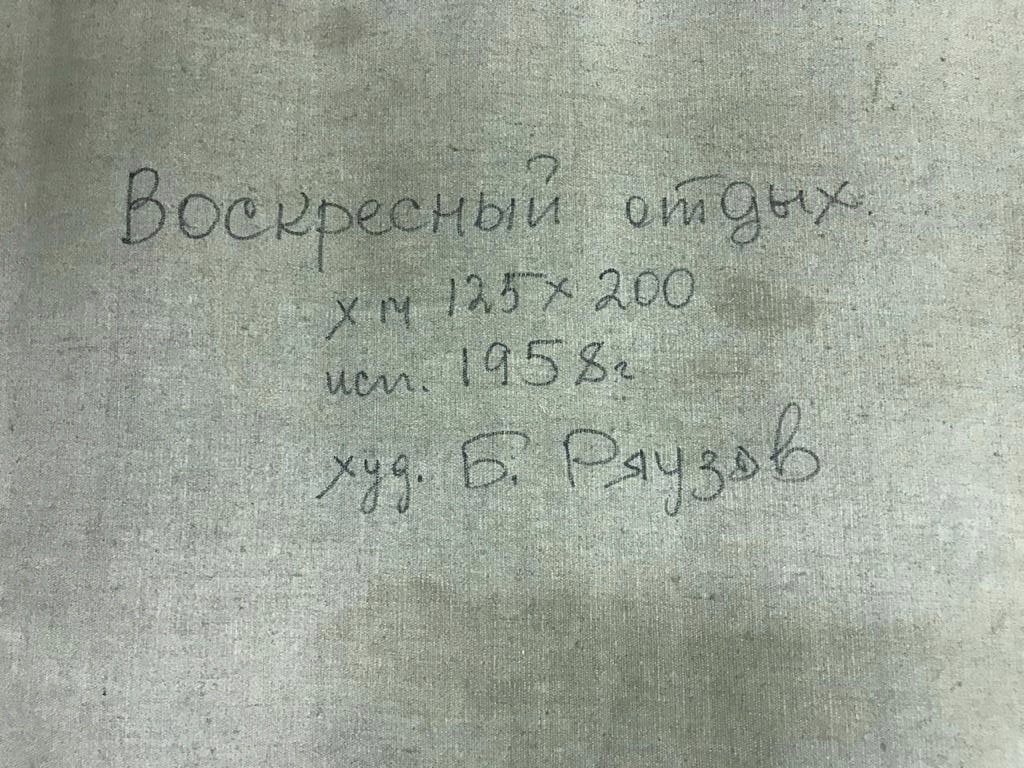 Воскресный отдых.
хм 125 х 200
исп. 1958г
худ. Б. Ряузов